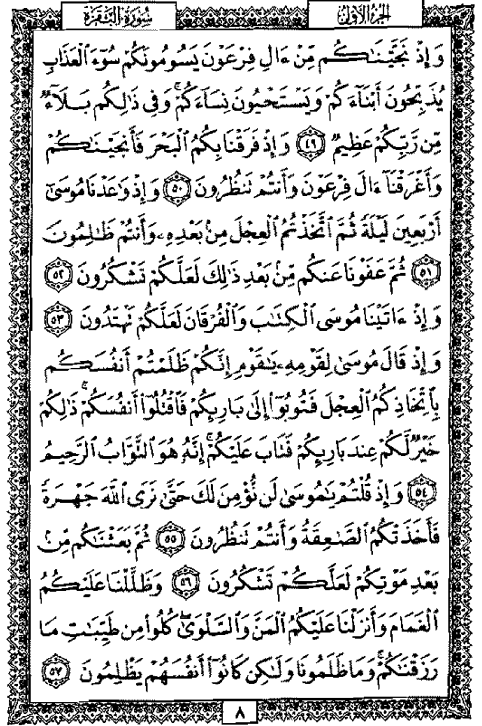 الجزء الأول سورة البقرة
وَإِذْ نَجَّيْنَٰكُم مِّنْ ءَالِ فِرْعَوْنَ يَسُومُونَكُمْ سُوٓءَ ٱلْعَذَابِ
يُذَبِّحُونَ أَبْنَآءَكُمْ وَيَسْتَحْيُونَ نِسَآءَكُمْ ۚ وَفِى ذَٰلِكُم بَلَآءٌ
مِّن رَّبِّكُمْ عَظِيمٌ ٤٩ وَإِذْ فَرَقْنَا بِكُمُ ٱلْبَحْرَ فَأَنجَيْنَٰكُمْ
وَأَغْرَقْنَآ ءَالَ فِرْعَوْنَ وَأَنتُمْ تَنظُرُونَ ٥٠ وَإِذْ وَٰعَدْنَا مُوسَىٰٓ
أَرْبَعِينَ لَيْلَةً ثُمَّ ٱتَّخَذْتُمُ ٱلْعِجْلَ مِنۢ بَعْدِهِۦ وَأَنتُمْ ظَٰلِمُونَ
٥١ ثُمَّ عَفَوْنَا عَنكُم مِّنۢ بَعْدِ ذَٰلِكَ لَعَلَّكُمْ تَشْكُرُونَ ٥٢
وَإِذْ ءَاتَيْنَا مُوسَى ٱلْكِتَٰبَ وَٱلْفُرْقَانَ لَعَلَّكُمْ تَهْتَدُونَ ٥٣
وَإِذْ قَالَ مُوسَىٰ لِقَوْمِهِۦ يَٰقَوْمِ إِنَّكُمْ ظَلَمْتُمْ أَنفُسَكُم
بِٱتِّخَاذِكُمُ ٱلْعِجْلَ فَتُوبُوٓا۟ إِلَىٰ بَارِئِكُمْ فَٱقْتُلُوٓا۟ أَنفُسَكُمْ ۚ ذَٰلِكُمْ
خَيْرٌ لَّكُمْ عِندَ بَارِئِكُمْ فَتَابَ عَلَيْكُمْ ۚ إِنَّهُۥ هُوَ ٱلتَّوَّابُ ٱلرَّحِيمُ
٥٤ وَإِذْ قُلْتُمْ يَٰمُوسَىٰ لَن نُّؤْمِنَ لَكَ حَتَّىٰ نَرَى ٱللَّهَ جَهْرَةً
فَأَخَذَتْكُمُ ٱلصَّٰعِقَةُ وَأَنتُمْ تَنظُرُونَ ٥٥ ثُمَّ بَعَثْنَٰكُم مِّنۢ
بَعْدِ مَوْتِكُمْ لَعَلَّكُمْ تَشْكُرُونَ ٥٦ وَظَلَّلْنَا عَلَيْكُمُ
ٱلْغَمَامَ وَأَنزَلْنَا عَلَيْكُمُ ٱلْمَنَّ وَٱلسَّلْوَىٰ ۖ كُلُوا۟ مِن طَيِّبَٰتِ مَا
رَزَقْنَٰكُمْ ۖ وَمَا ظَلَمُونَا وَلَٰكِن كَانُوٓا۟ أَنفُسَهُمْ يَظْلِمُونَ ٥٧
٨